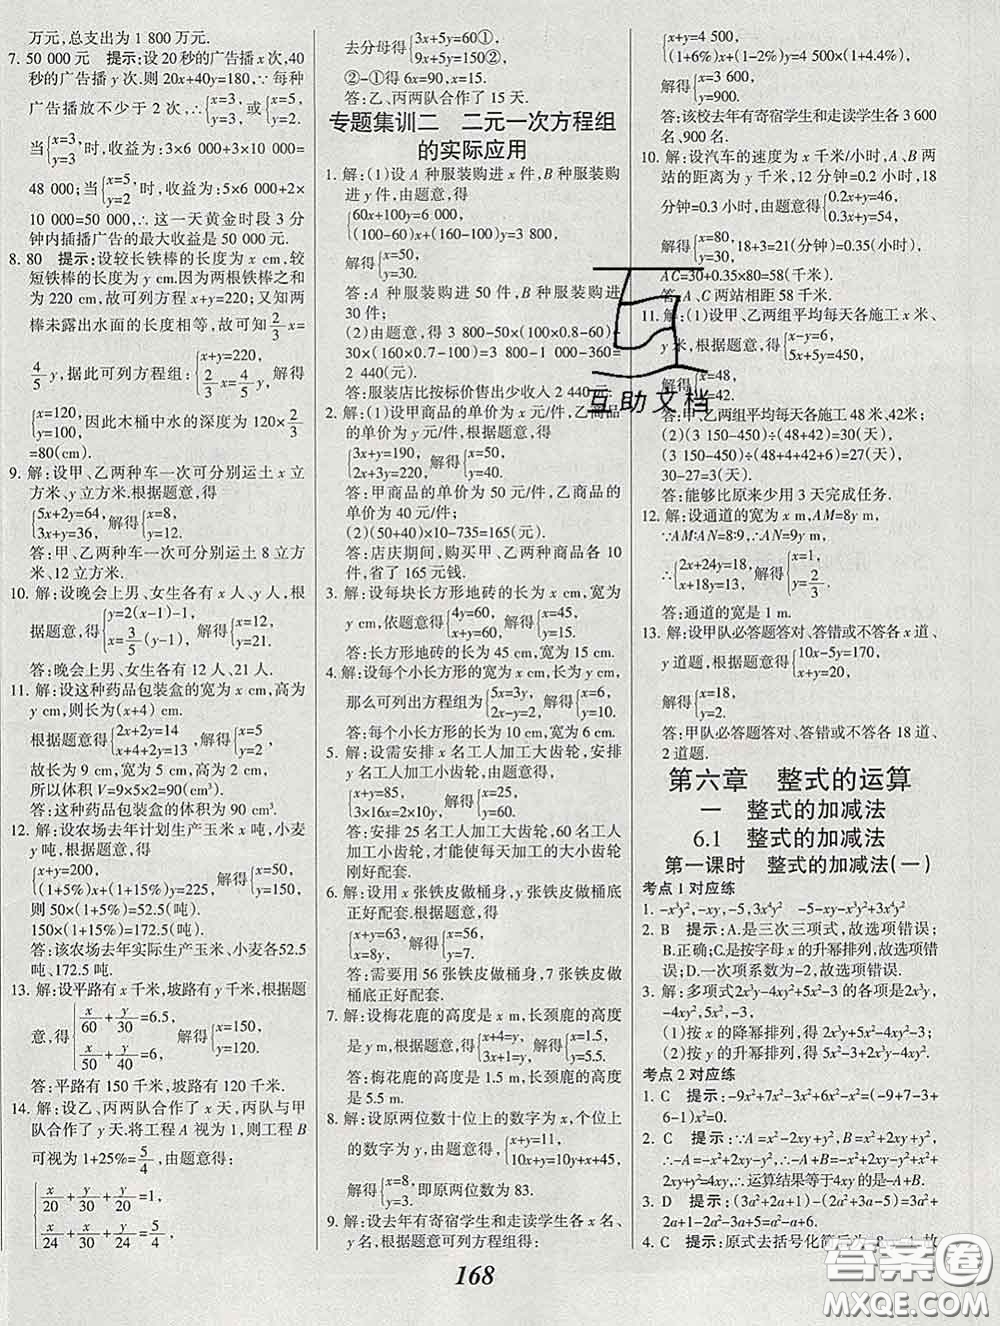 万元,总支出为1 800万元.
7. 50 000元 提示:设20秒的广告播x次,40
秒的广告播y次.则20x+40y=180,∵每种
广告播放不少于2次,∴{x=3, y=3,或{x=5, y=2.
当{x=3, y=3时,收益为:3×6 000+3×10 000=
48 000;当{x=5, y=2时,收益为:5×6 000+2×
10 000=50 000,∴这一天黄金时段3分
钟内插播广告的最大收益是50 000元.
8. 80 提示:设较长铁棒的长度为x cm,较
短铁棒的长度为y cm.因为两根铁棒之和
为220 cm,故可列方程x+y=220;又知两
棒未露出水面的长度相等,故可知2/3x=
4/5y,据此可列方程组:{x+y=220, 2/3x=4/5y,解得
{x=120, y=100,因此木桶中水的深度为120×2/3
=80(cm).
9. 解:设甲、乙两种车一次可分别运土x立
方米、y立方米.根据题意,得
{5x+2y=64, 3x+y=36,解得{x=8, y=12.
答:甲、乙两种车一次可分别运土8立方
米、12立方米.
10. 解:设晚会上男、女生各有x人、y人,根
据题意,得{y=2(x-1)-1, x=3/5(y-1),解得{x=12, y=21.
答:晚会上男、女生各有12人、21人.
11. 解:设这种药品包装盒的宽为x cm,高为
y cm,则长为(x+4) cm.
根据题意得{2x+2y=14, x+4+2y=13,解得{x=5, y=2.
故长为9 cm,宽为5 cm,高为2 cm.
所以体积V=9×5×2=90(cm³).
答:这种药品包装盒的体积为90 cm³.
12. 解:设农场去年计划生产玉米x吨,小麦
y吨,根据题意可得:
{x+y=200, (1+5%)x+(1+15%)y=225,解得{x=50, y=150.
则50×(1+5%)=52.5(吨).
150×(1+15%)=172.5(吨).
答:该农场去年实际生产玉米、小麦各52.5
吨、172.5吨.
13. 解:设平路有x千米,坡路有y千米,根据题
意,得{x/60+y/30=6.5, x/50+y/40=6,解得{x=150, y=120.
答:平路有150千米,坡路有120千米.
14. 解:设乙、丙两队合作了x天,丙队与甲
队合作了y天.将工程A视为1,则工程B
可视为1+25%=5/4,由题意得:
{x/20+x/30+y/24=1, x/24+y/30+y/24=5/4,
去分母得{3x+5y=60①, 9x+5y=150②,
②-①得6x=90,x=15.
答:乙、丙两队合作了15天.
专题集训二 二元一次方程组
的实际应用
1. 解:(1)设A种服装购进x件,B种服装购
进y件,由题意,得
{60x+100y=6 000, (100-60)x+(160-100)y=3 800,
解得{x=50, y=30.
答:A种服装购进50件,B种服装购进
30件;
(2)由题意,得3 800-50×(100×0.8-60)-
30×(160×0.7-100)=3 800-1 000-360=
2 440(元).
答:服装店比按标价售出少收入2 440元.
2. 解:(1)设甲商品的单价为x元/件,乙商品
的单价为y元/件,根据题意,得
{3x+y=190, 2x+3y=220,解得{x=50, y=40.
答:甲商品的单价为50元/件,乙商品的
单价为40元/件;
(2)(50+40)×10-735=165(元).
答:店庆期间,购买甲、乙两种商品各10
件,省了165元钱.
3. 解:设每块长方形地砖的长为x cm,宽为
y cm,依题意得{4y=60, x+y=60,解得{x=45, y=15.
答:长方形地砖的长为45 cm,宽为15 cm.
4. 解:设每个小长方形的长为y cm,宽为x cm,
那么可列出方程组为{5x=3y, 2x-y=2,解得{x=6, y=10.
答:每个小长方形的长为10 cm,宽为6 cm.
5. 解:设需安排x名工人加工大齿轮,安排
y名工人加工小齿轮,由题意得:
{x+y=85, 3×16x=2×10y,解得{x=25, y=60.
答:安排25名工人加工大齿轮,60名工人
加工小齿轮,才能使每天加工的大小齿轮
刚好配套.
6. 解:设用x张铁皮做桶身,y张铁皮做桶底
正好配套.根据题意,得
{x+y=63, x=8y,解得{x=56, y=7.
答:需要用56张铁皮做桶身,7张铁皮做
桶底正好配套.
7. 解:设梅花鹿的高度是x m,长颈鹿的高度
是y m,根据题意,得{x+4=y, 3x+1=y,解得{x=1.5, y=5.5.
答:梅花鹿的高度是1.5 m,长颈鹿的高度
是5.5 m.
8. 解:设原两位数十位上的数字为x,个位上
的数字为y,由题意得:{x+y=11, 10x+y=10y+x+45,
解得{x=8, y=3.即原两位数为83.
9. 解:设去年有寄宿学生和走读学生各x名、
y名.根据题意可列方程组得:
{x+y=4 500, (1+6%)x+(1-2%)y=4 500×(1+4.4%),
解得{x=3 600, y=900.
答:该校去年有寄宿学生和走读学生各3 600
名、900名.
10. 解:设汽车的速度为x千米/小时,A、B两
站的距离为y千米,12分钟=0.2小时,18
分钟=0.3小时,由题意得{0.2x+y=46, 0.3x+y=54,
解得{x=80, y=30,18+3=21(分钟)=0.35(小时),
AC=30+0.35×80=58(千米).
答:A、C两站相距58千米.
11. 解:(1)设甲、乙两组平均每天各施工x米、
y米,根据题意,得{x-y=6, 5x+5y=450,
解得{x=48, y=42.
答:甲、乙两组平均每天各施工48米,42米;
(2)(3 150-450)÷(48+42)=30(天),
(3 150-450)÷(48+4+42+6)=27(天),
30-27=3(天).
答:能够比原来少用3天完成任务.
12. 解:设通道的宽为x m,AM=8y m,
∵AM:AN=8:9,∴AN=9y m,
∴{2x+24y=18, x+18y=13,解得{x=1, y=2/3.
答:通道的宽是1 m.
13. 解:设甲队必答题答对、答错或不答各x道、
y道题,根据题意,得{10x-5y=170, x+y=20,
解得{x=18, y=2.
答:甲队必答题答对、答错或不答各18道、
2道题.
第六章 整式的运算
一 整式的加减法
6.1 整式的加减法
第一课时 整式的加减法(一)
考点1对应练
1. -x³y²,-xy,-5,3x⁴y² -5-xy-x³y²+3x⁴y²
2. B 提示:A.是三次三项式,故选项错误;
B.正确;C.是按字母x的升幂排列,故选项错
误;D.一次项系数为-2,故选项错误.
3. 解:多项式2x³y-4xy²+5x²-3的各项为2x³y,
-4xy²,5x²,-3,
(1)按x的降幂排列,得2x³y+5x²-4xy²-3;
(2)按y的升幂排列,得5x²-3+2x³y-4xy².
考点2对应练
1. C 提示:-9x²+7x²-3x²+6x²-x²=(-9+7-3+
6-1)x²=0.
2. C 提示:∵A=x²-2xy+y²,B=x²+2xy+y²,
∴-A=-x²+2xy-y²,∴-A+B=-x²+2xy-y²+x²+
2xy+y²=4xy,∴运算结果等于4xy的是-A+B.
3. D 提示:(3a²+2a+1)-(2a²+3a-5)=3a²+
2a+1-2a²-3a+5=a²-a+6.
4. C 提示:原式去括号化简后为
168
互助文档
答案圈
MXQE.COM